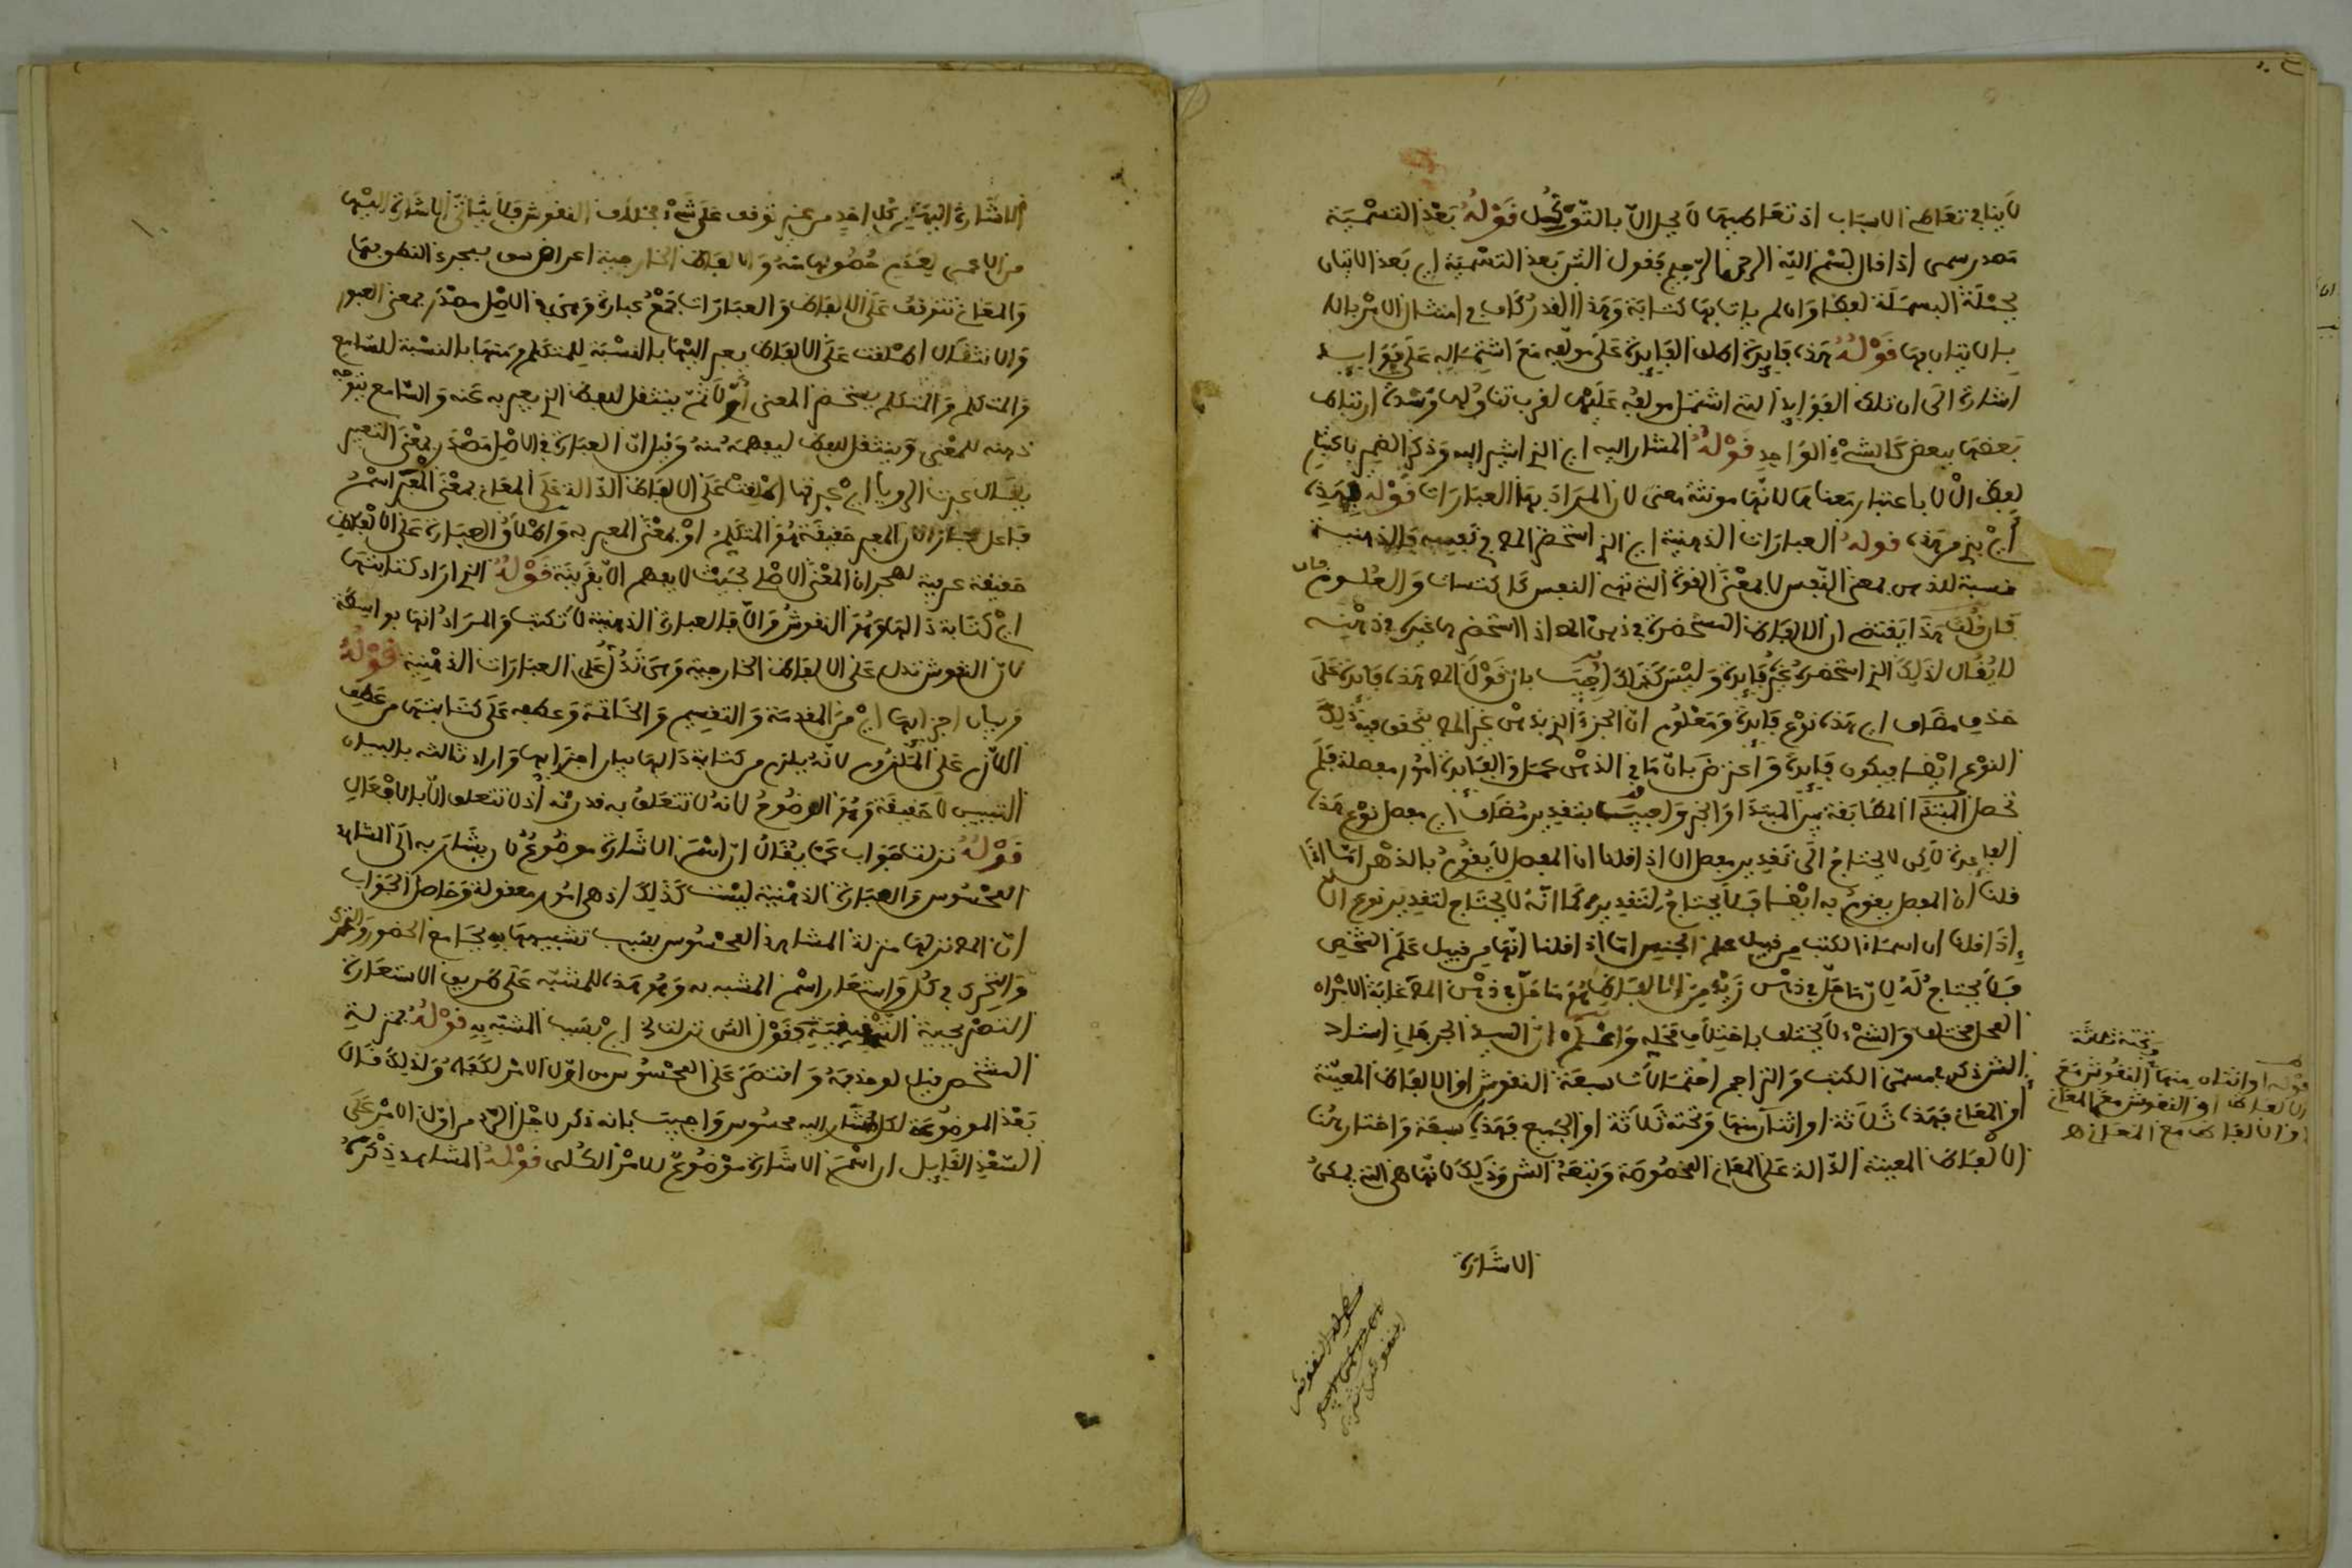 لا ينافي تعاطي الاسباب اذ تعاطيها لا يخل الا بالتوكل قوله بعد التسمية
مصدر سمى اذا قال بسم الله الرحمن الرحيم فقول الش بعد التسمية اي بعد الاتيان
بجملة البسملة لفظا وان لم يات بها كتابة وهذا القدر كاف في امتثال الامر بالا
بالاتيان بها قوله هذه فايدة اطلق الفايدة على مولفه مع اشتماله على فوايد
اشارة الى ان تلك الفوايد التي اشتمل مولفه عليها لقرب تناولها وشدة ارتباط
بعضها ببعض كالشيء الواحد قوله المشار اليه اي الذي اشير اليه وذكر الضمير باعتبار
لفظ ال لا باعتبار معناها لانها مونثة معنى لان المراد بها العبارات قوله بهذه
اي من هذه قوله العبارات الذهنية اي الذي استحضرها في نفسه فالذهنية
نسبة للذهن بمعنى النفس لا بمعنى القوة التي تهيء النفس لاكتساب والعلوم فان
فان قلت هذا يقتضي ان الالفاظ المستحضرة في ذهن المص اذا استحضرها غيره في ذهنه
لا يقال لذلك الذي استحضره غيره فايدة وليس كذلك اجيب بان قول المص هذه فايدة على
حذف مضاف اي هذه نوع فايدة ومعلوم ان الجزء الذي بذهن غير المص يتحقق فيه ذلك
النوع ايضا فيكون فايدة واعترض بان ما في الذهن مجمل والفايدة امور مفصلة فلم
تحصل المطابقة بين المبتدا والخبر واجيب بتقدير مضاف اي مفصل نوع هذه
الفايدة لكن لا يحتاج الى تقدير مفصل الا اذا قلنا ان المفصل لا يقوم بالذهن اما اذا
قلنا ان المفصل يقوم به ايضا فلا يحتاج لتقديره كما انه لا يحتاج لتقدير نوع الا
اذا قلنا ان اسماء الكتب من قبيل علم الجنس اما اذا قلنا انها من قبيل علم الشخص
فلا يحتاج له لان ما حل في ذهن زيد من الالفاظ هو ما حل في ذهن المص غاية الامر ان
المحل مختلف والشيء لا يختلف باختلاف محله واعلم ان السيد الجرجاني استاد
الش ذكر في مسمى الكتب والتراجم احتمالات سبعة النقوش او الالفاظ المعينة
او المعاني فهذه ثلاثة او اثنان منها وتحته ثلاثة او الجميع فهذه سبعة واختار منها
الالفاظ المعينة الدالة على المعاني المخصوصة وتبعه الش وذلك لانها هي التي يمكن
الاشارة
وتحته ثلاثة
قوله او اثنان منها النقوش مع
الالفاظ او النقوش مع المعاني
او الالفاظ مع المعاني اه
الاشارة اليها من كل احد من غير توقف على شيء بخلاف النقوش فلا يتاتى الاشارة اليها
من الاعمى لعدم حصولها منه والالفاظ الخارجية اعراض تنقضي بمجرد النطق بها
والمعاني تتوقف على الالفاظ والعبارات جمع عبارة وهي في الاصل مصدر بمعنى العبور
والانتقال اطلقت على الالفاظ يعبر اليها بالنسبة للمتكلم ومنها بالنسبة للسامع
والمتكلم يستحضر المعنى اولا ثم ينتقل للفظ الذي يعبر به عنه والسامع يتوجه
ذهنه للمعنى وينتقل للفظ ليفهمه منه وقيل ان العبارة في الاصل مصدر بمعنى التعبير
يقال عبرت الرويا اي عبرتها اطلقت على الالفاظ الدالة على المعاني بمعنى المعبر اسم
فاعل مجازا لان المعبر حقيقة هو المتكلم او بمعنى المعبر به واطلاق العبارة على الالفاظ
حقيقة عرفية لهجران المعنى الاصلي بحيث لا يفهم الا بقرينة قوله التي اراد كتابتها
اي كتابة دالها وهو النقوش والا فالعبارة الذهنية لا تكتب والمراد انها بواسطة
لان النقوش تدل على الالفاظ الخارجية وهي تدل على العبارات الذهنية قوله
وبيان اجزايها اي من المقدمة والتقسيم والخاتمة وعطفه على كتابتها من عطف
اللازم على الملزوم لانه يلزم من كتابة دالها بيان اجزايها واراد بالبيان
التبيين لا حقيقة وهو الوضوح لانه لا تتعلق به قدرته اذ لا تتعلق الا بالافعال
قوله نزلت جواب عما يقال ان اسم الاشارة موضوع لان يشار به الى المشاهد
المحسوس والعبارة الذهنية ليست كذلك اذ هي امور معقولة وحاصل الجواب
ان المص نزلها منزلة المشاهد المحسوس بسبب تشبيهها به بجامع الحضور
في كل واستعار اسم المشبه به وهو هذه للمشبه على طريق الاستعارة
التصريحية التحقيقية وقول الش نزلت اي بسبب المشبه به قوله بمنزلة
المشخص قيل لو حذفه واقتصر على المحسوس من اول الامر لكفاه ولذلك قال
بعد الموضوعة لكل مشار اليه محسوس واجيب بانه ذكر لاجل الرد من اول الامر على
السعد القايل ان اسم الاشارة موضوع للامر الكلي قوله المشاهد ذكره